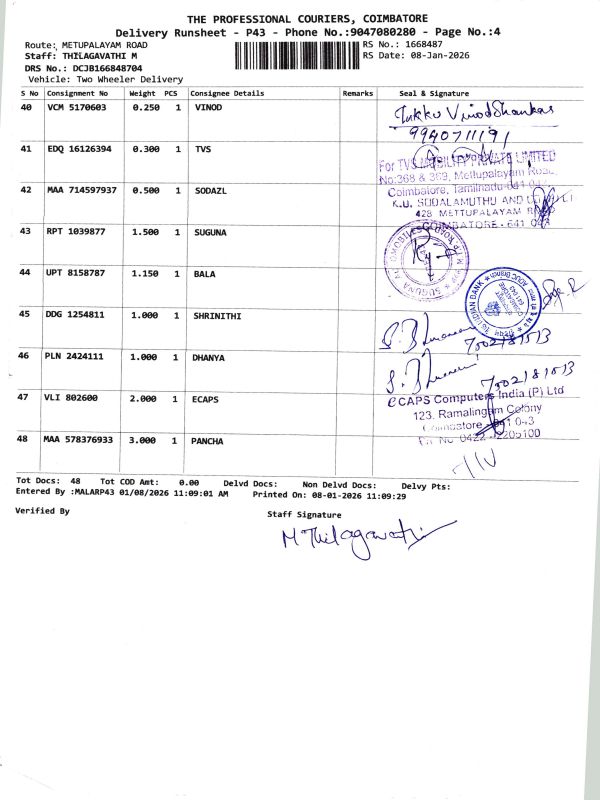 THE PROFESSIONAL COURIERS, COIMBATORE
Delivery Runsheet - P43 - Phone No.:9047080280 - Page No.:4
Route: METUPALAYAM ROAD
RS No.: 1668487
Staff: THILAGAVATHI M
RS Date: 08-Jan-2026
DRS No.: DCJB166848704
Vehicle: Two Wheeler Delivery
S No Consignment No Weight PCS Consignee Details Remarks Seal & Signature
40 VCM 5170603 0.250 1 VINOD
9940711191
41 EDQ 16126394 0.300 1 TVS
For TVS MOBILITY PRIVATE LIMITED
No:368 & 369, Mettupalayam Road,
Coimbatore, Tamilnadu-641 043
42 MAA 714597937 0.500 1 SODAZL
K.U. SODALAMUTHU AND
428 METTUPALAYAM
COIMBATORE - 641 043
43 RPT 1039877 1.500 1 SUGUNA
SUGUNA
44 UPT 8158787 1.150 1 BALA
INDIAN BANK
45 DDG 1254811 1.000 1 SHRINITHI
7002181513
46 PLN 2424111 1.000 1 DHANYA
7002181513
47 VLI 802600 2.000 1 ECAPS
eCAPS Computers India (P) Ltd
123, Ramalingam Colony
Coimbatore - 641 043
Ph No 0422 - 2205100
48 MAA 578376933 3.000 1 PANCHA
Tot Docs: 48 Tot COD Amt: 0.00 Delvd Docs: Non Delvd Docs: Delvy Pts:
Entered By :MALARP43 01/08/2026 11:09:01 AM Printed On: 08-01-2026 11:09:29
Verified By
Staff Signature
M Thilagavathi